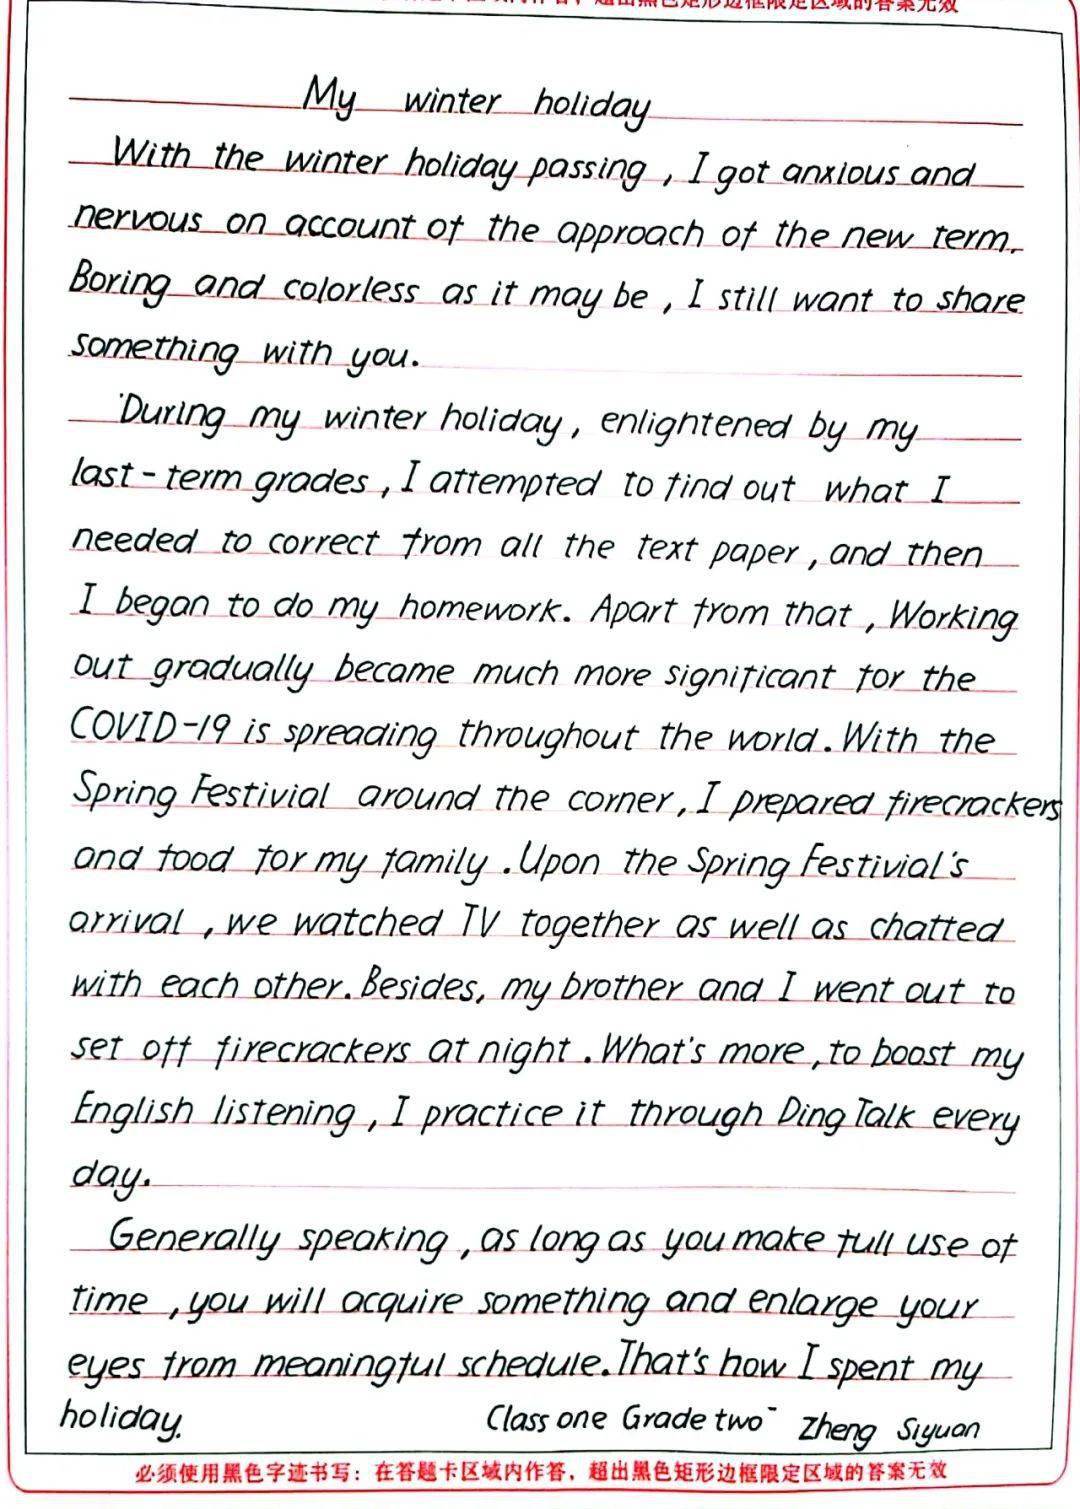 超出黑色矩形边框限定区域的答案无效
My winter holiday
With the winter holiday passing, I got anxious and
nervous on account of the approach of the new term.
Boring and colorless as it may be, I still want to share
something with you.
During my winter holiday, enlightened by my
last-term grades, I attempted to find out what I
needed to correct from all the text paper, and then
I began to do my homework. Apart from that, Working
out gradually became much more significant for the
COVID-19 is spreading throughout the world. With the
Spring Festivial around the corner, I prepared firecrackers
and food for my family. Upon the Spring Festivial's
arrival, we watched TV together as well as chatted
with each other. Besides, my brother and I went out to
set off firecrackers at night. What's more, to boost my
English listening, I practice it through Ding Talk every
day.
Generally speaking, as long as you make full use of
time, you will acquire something and enlarge your
eyes from meaningful schedule. That's how I spent my
holiday. Class one Grade two - Zheng Siyuan
必须使用黑色字迹书写：在答题卡区域内作答，超出黑色矩形边框限定区域的答案无效